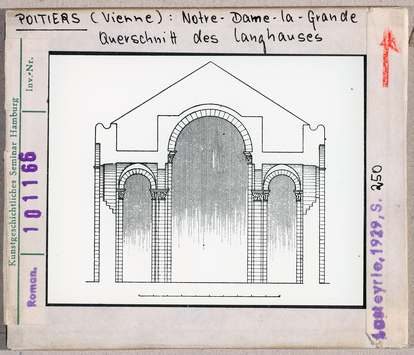 POITIERS (Vienne): Notre-Dame-la-Grande
Querschnitt des Langhauses
Kunstgeschichtliches Seminar Hamburg
Inv.-Nr.
101166
Roman.
Lasteyrie, 1929, S. 250